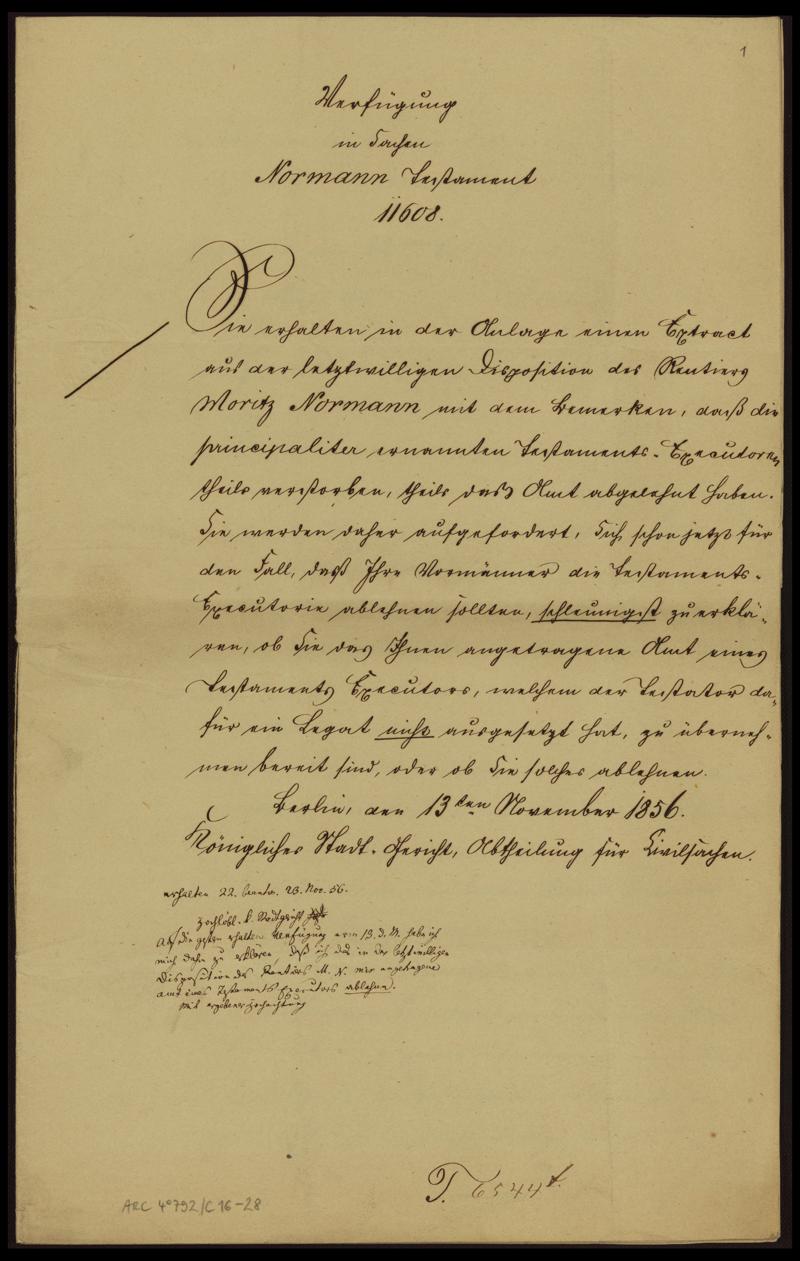 1
Verfügung
in Sachen
Normann Testament
11608.
Sie erhalten in der Anlage einen Extract
aus der letztwilligen Disposition des Rentiers
Moritz Normann mit dem Bemerken, daß die
principaliter ernannten Testaments-Executoren
theils verstorben, theils das Amt abgelehnt haben.
Sie werden daher aufgefordert, Sich schon jetzt für
den Fall, daß Ihre Vormänner die Testaments-
Executorie ablehnen sollten, schleunigst zu erklä-
ren, ob Sie das Ihnen angetragene Amt eines
Testaments Executors, welchem der Testator da-
für ein Legat nicht ausgesetzt hat, zu überneh-
men bereit sind, oder ob Sie solches ablehnen.
Berlin, den 13ten November 1856.
Königliches Stadt-Gericht, Abtheilung für Civilsachen.
erhalten 22. 23. Nov. 56.
Hochlöbl. k. Stadtgericht
Auf die gestern erhaltene Verfügung vom 13. d. M. habe ich
mich dahin zu erklären, daß ich das in der letztwilligen
Disposition des Rentiers M. N. mir angetragene
Amt eines Testaments Executors ablehne.
Mit ergebener Hochachtung
T. 6544
ARC 4°792/C16-28